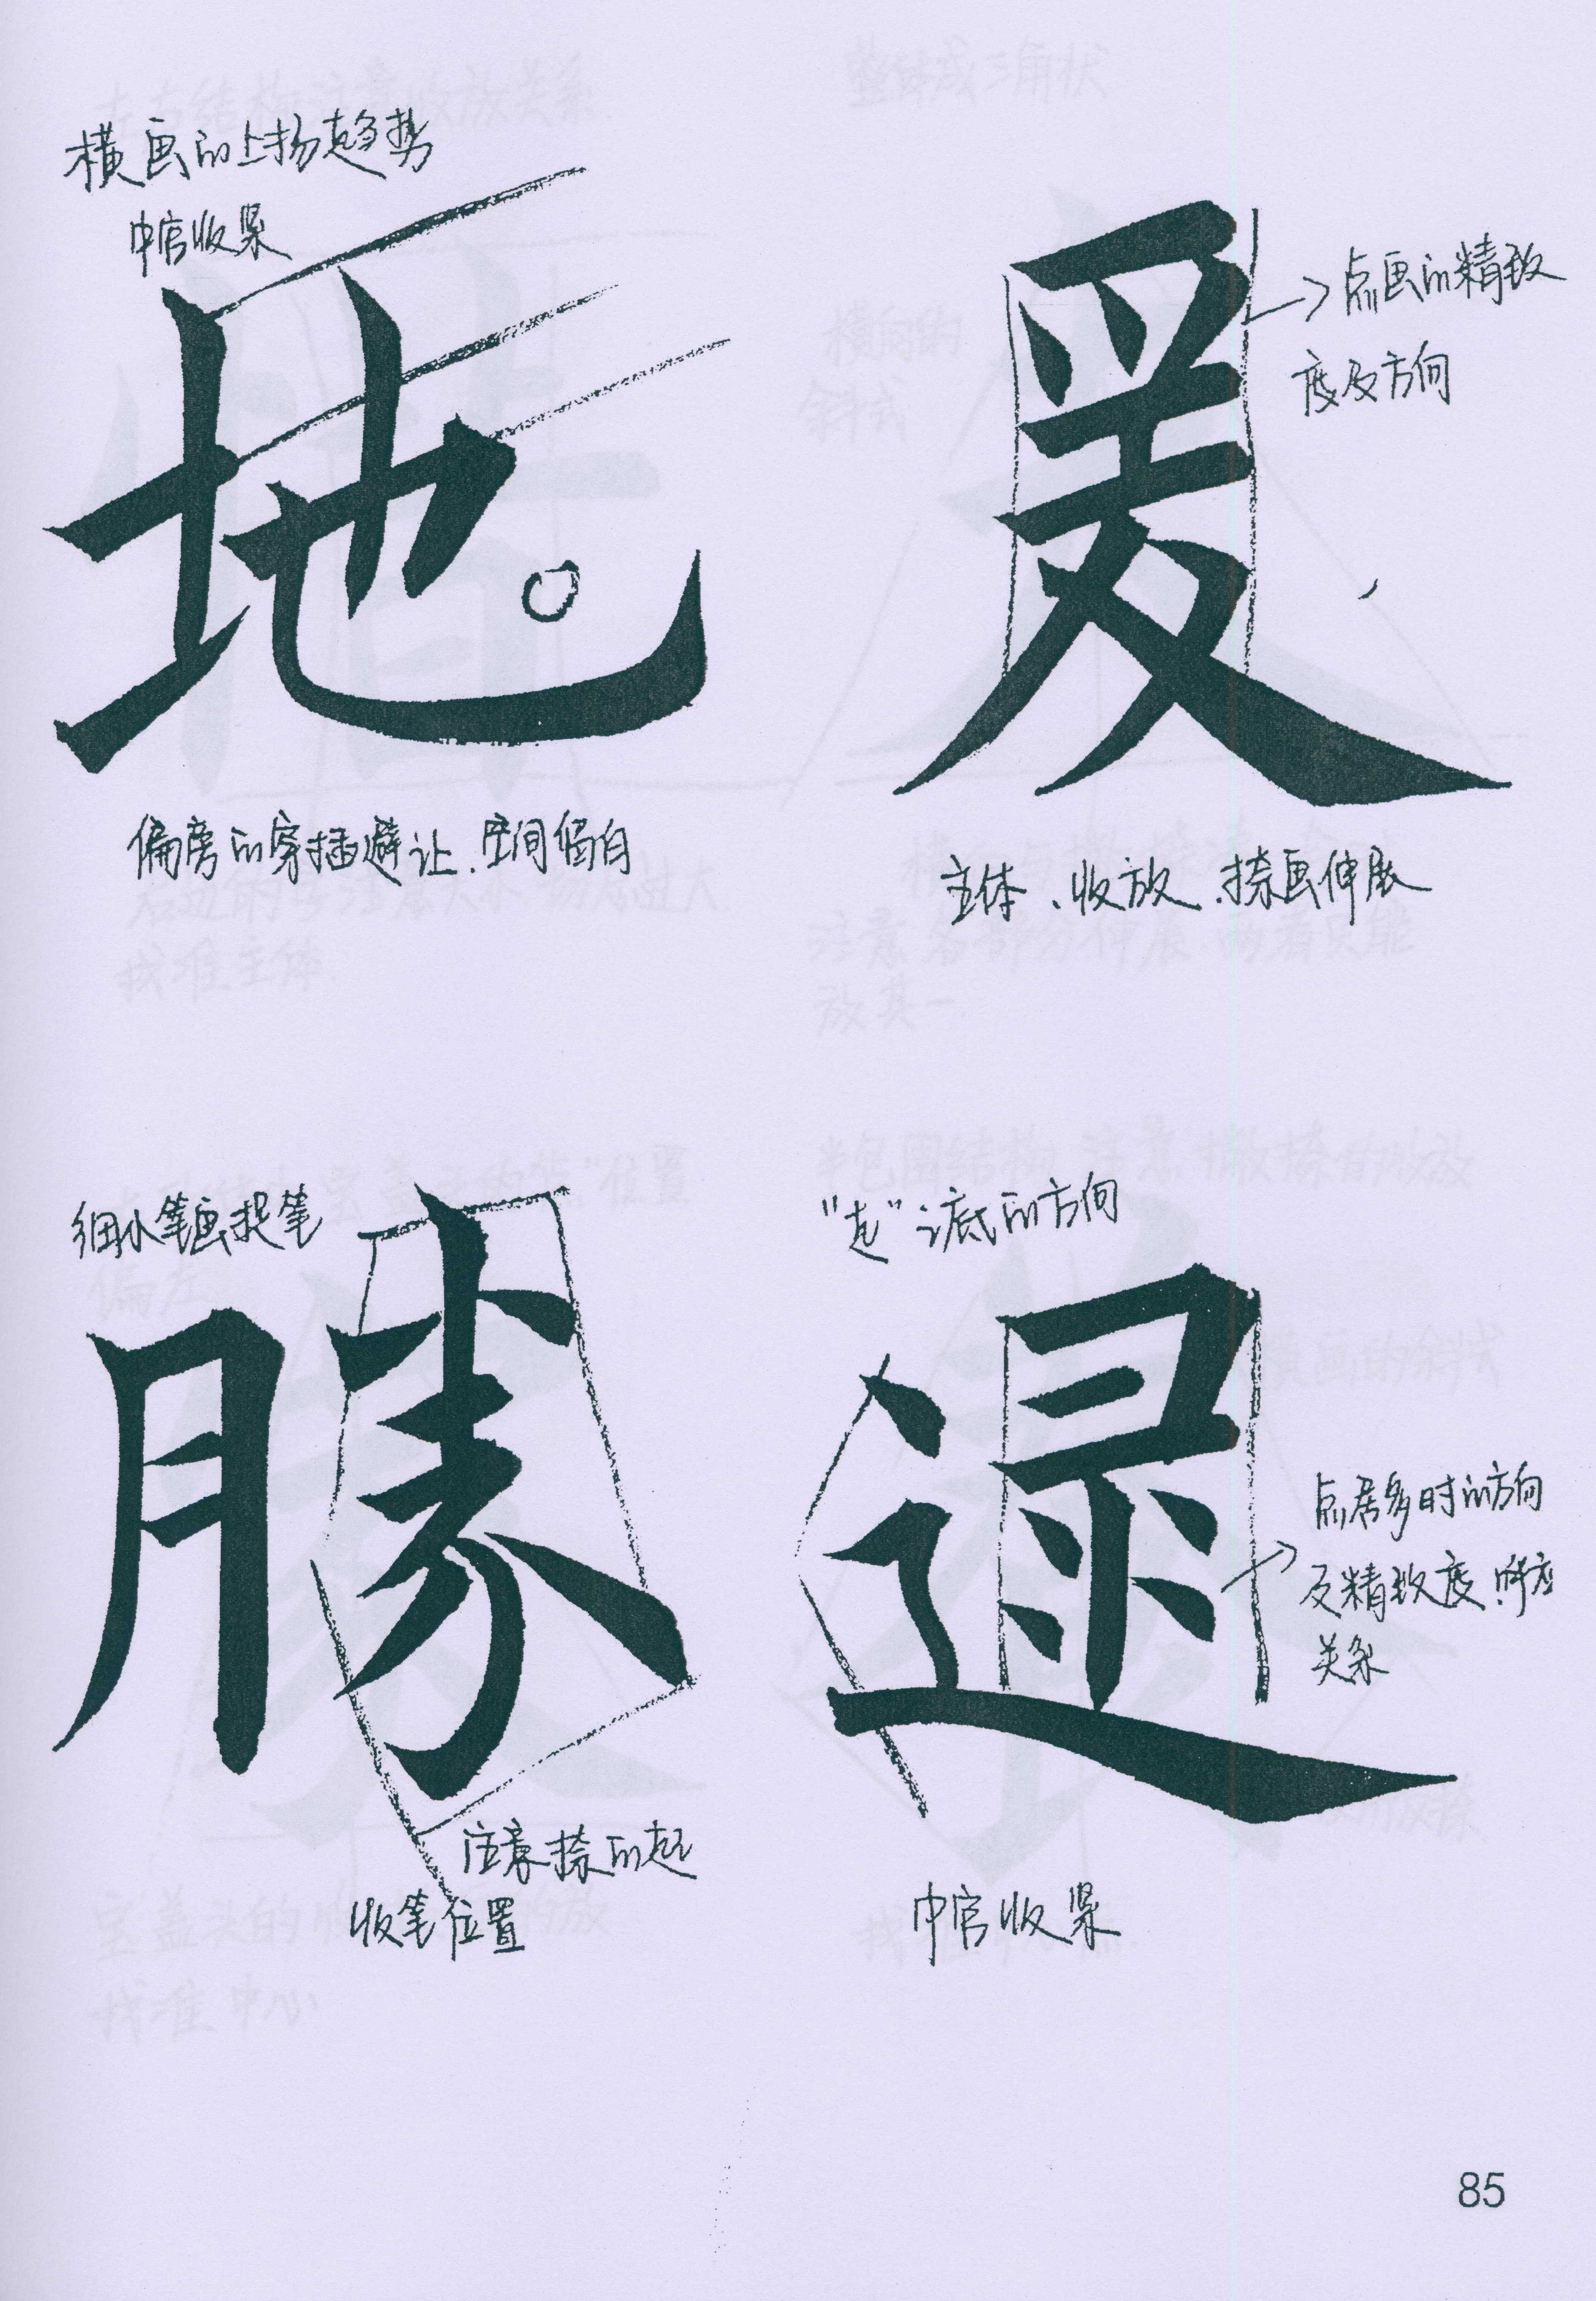 横画的上扬趋势
中宫收紧
地
偏旁的穿插避让.空间留白
爰
点画的精致
度及方向
主体、收放.捺画伸展
细小笔画提笔
勝
注意捺的起
收笔位置
"走"之底的方向
逯
点居多时的方向
及精致度.呼应
关系
中宫收紧
85